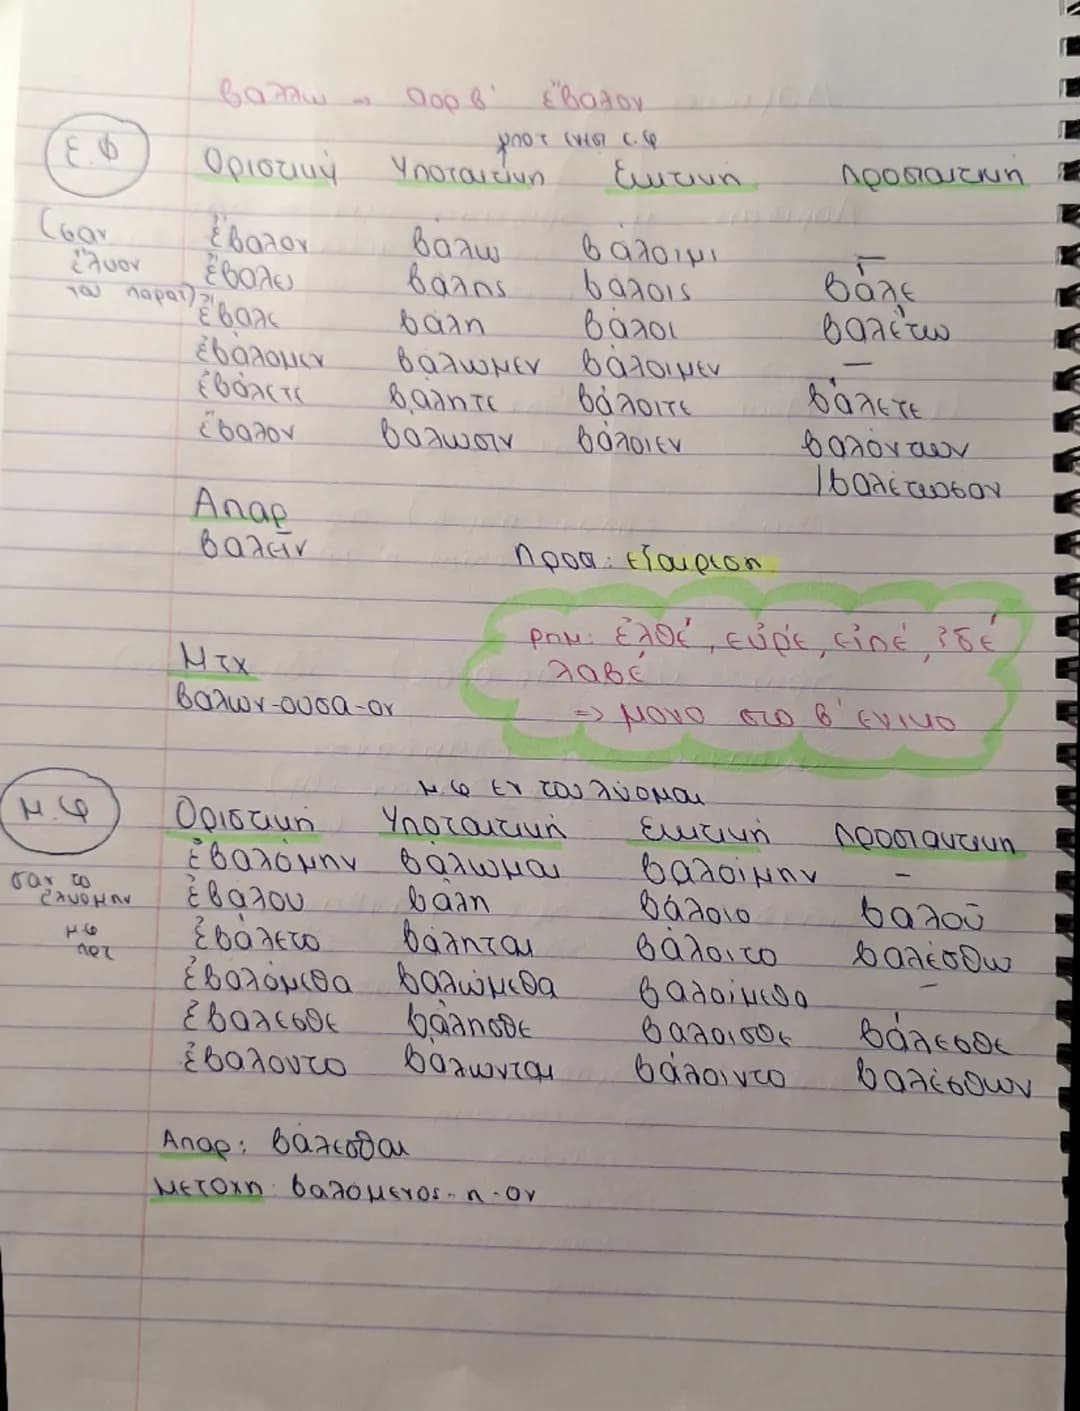 βαλλω → αορ β' ἔβαλον
Ε.Φ
υποτ ενεσ ε.φ
Οριστική Υποτακτική Ευκτική Προστακτική
(σαν ἔβαλον βάλω βάλοιμι –
ἔλυον ἔβαλες βάλης βάλοις βάλε
του παρατ) ἔβαλε βάλη βάλοι βαλέτω
ἐβάλομεν βάλωμεν βάλοιμεν –
ἐβάλετε βάλητε βάλοιτε βάλετε
ἔβαλον βαλωσιν βάλοιεν βαλόντων
/βαλέτωσαν
Απαρ
βαλεῖν
Προσ: εξαιρεση
ρημ: ἐλθέ, εὑρέ, εἰπέ, ἰδέ
λαβέ
⇒ μονο στο β' ενικο
Μτχ
βαλων-ουσα-ον
Μ.φ
μ φ εν του λύομαι
Οριστική Υποτακτική Ευκτική Προσταντικη
σαν το ἐβαλόμην βάλωμαι βαλοίμην –
ἐλυομην ἐβάλου βάλη βάλοιο βαλοῦ
μφ ἐβάλετο βάληται βάλοιτο βαλέσθω
πρτ ἐβαλόμεθα βαλώμεθα βαλοίμεθα –
ἐβαλεσθε βάλησθε βαλοισθε βάλεσθε
ἐβαλοντο βαλωνται βάλοιντο βαλέσθων
Απαρ: βαλεσθαι
μετοχη: βαλόμενος-η-ον